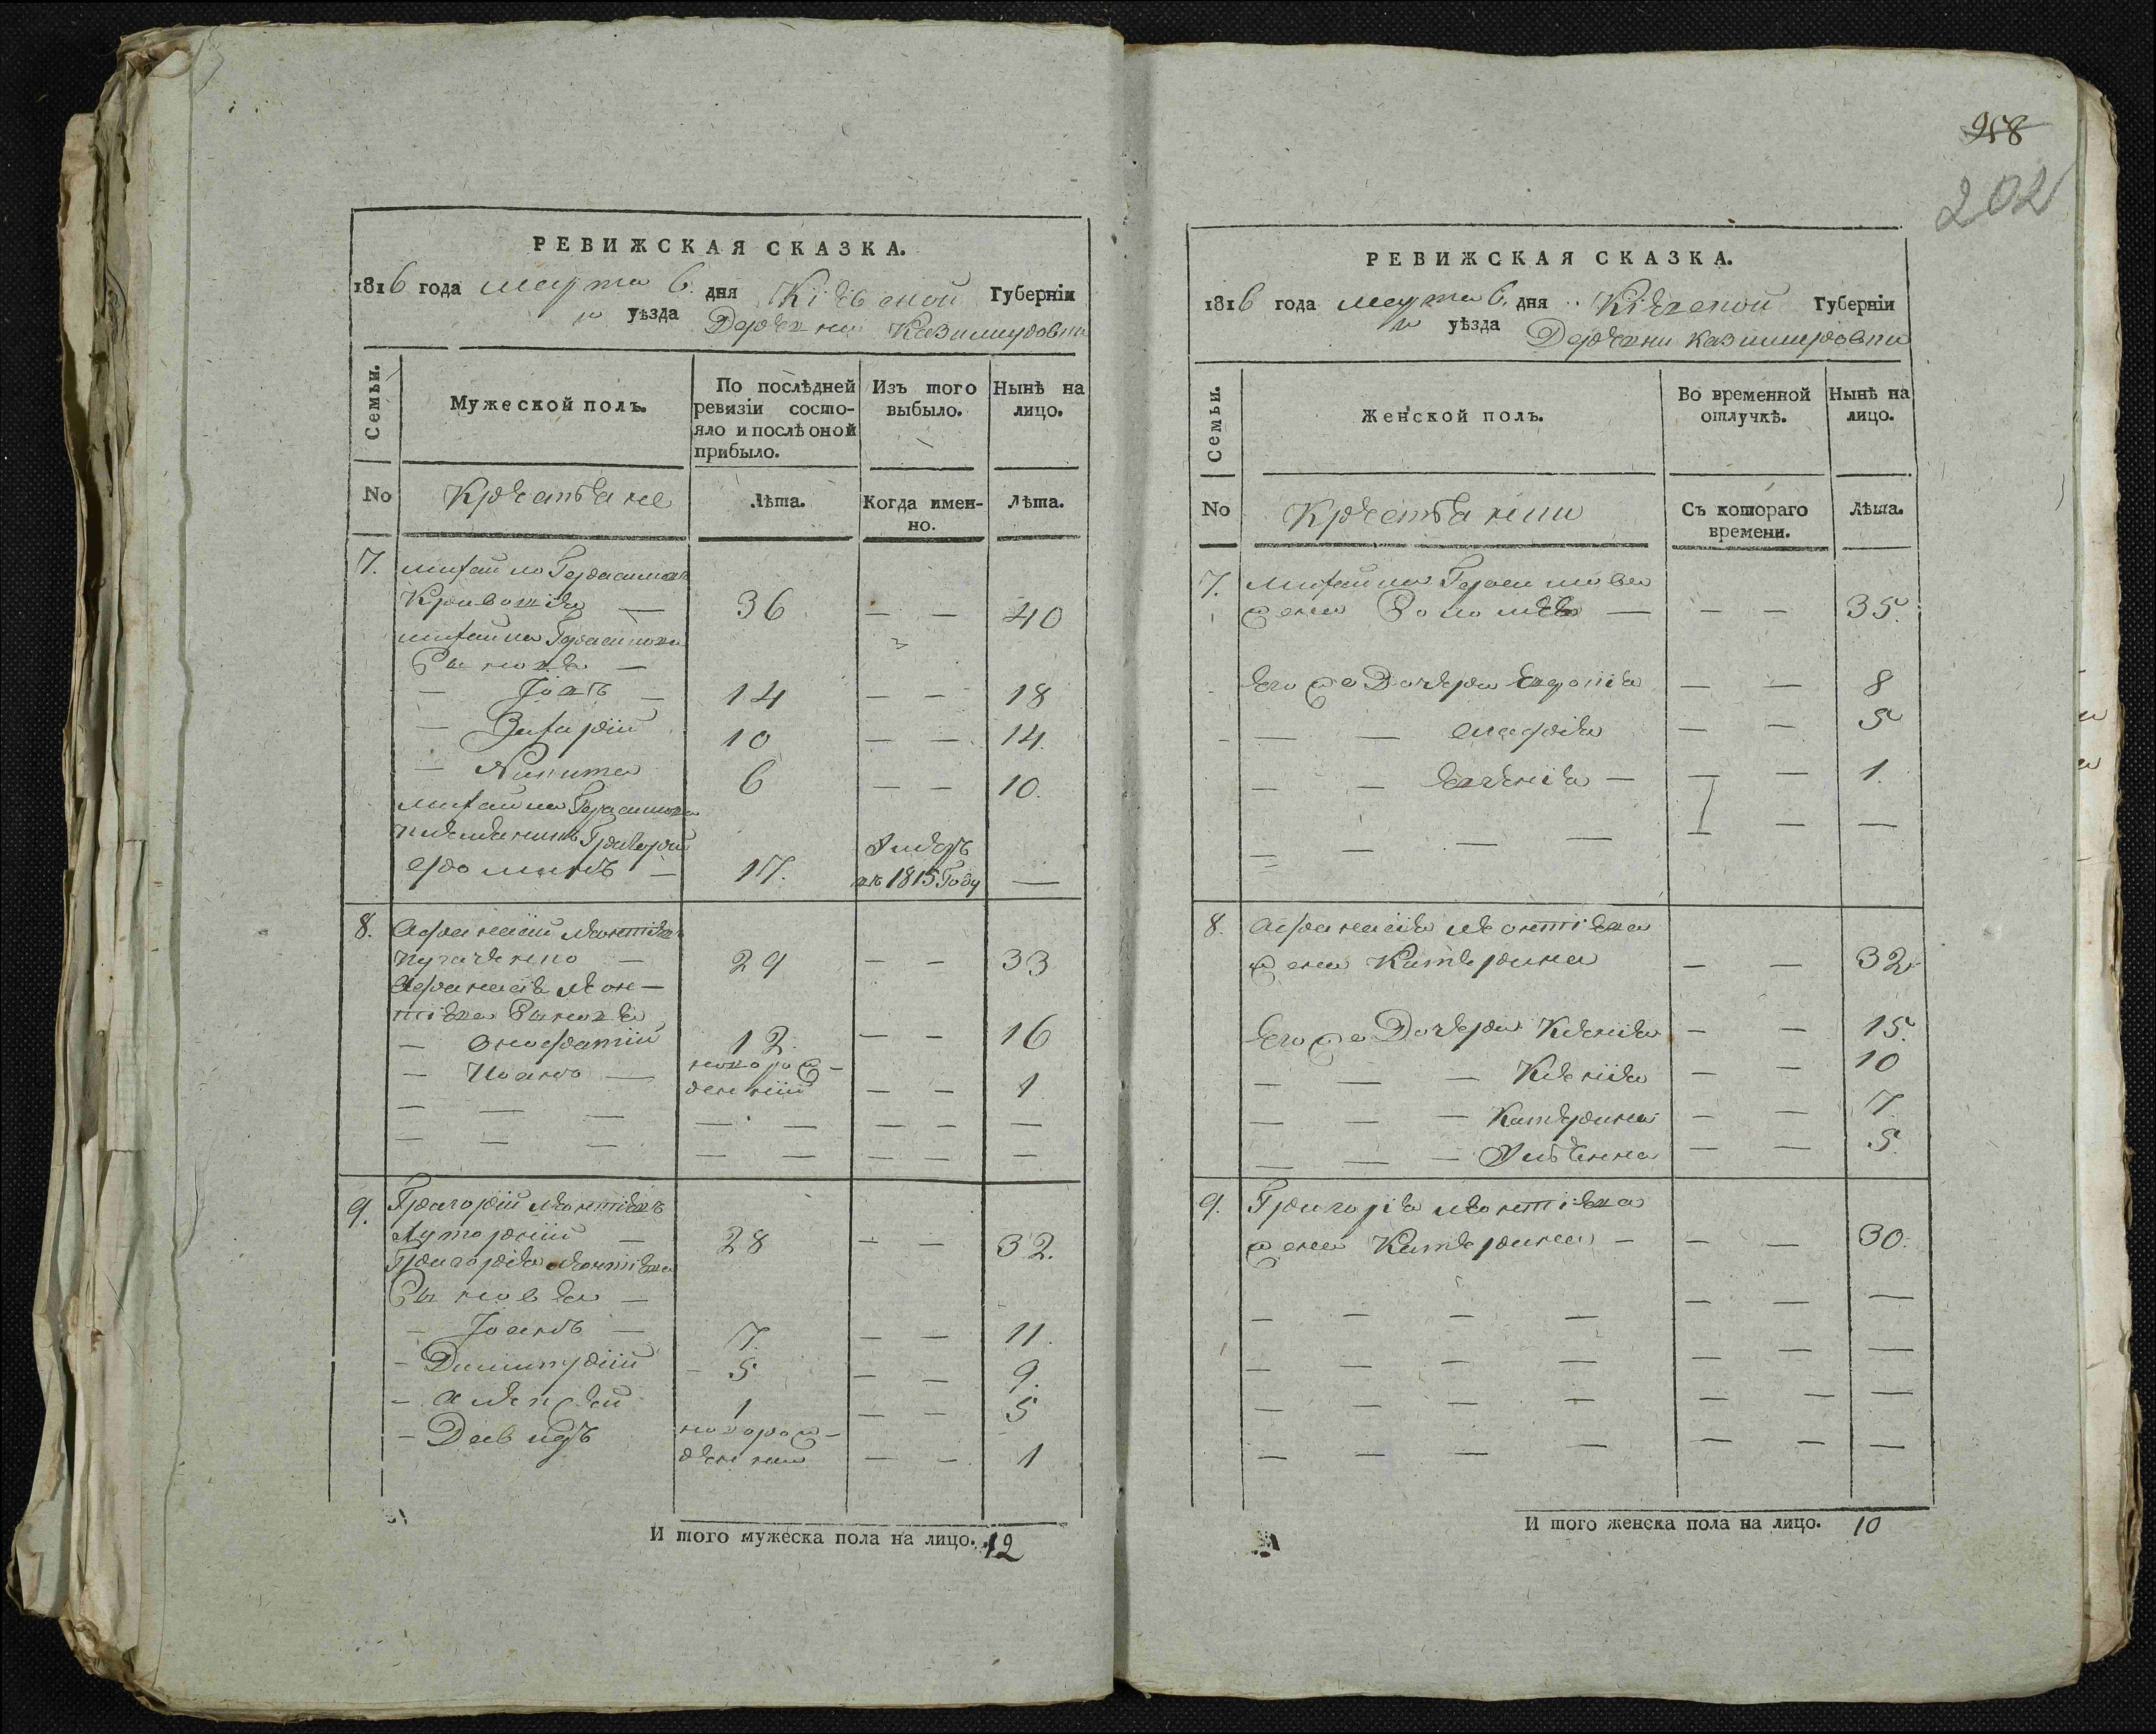 РЕВИЖСКАЯ СКАЗКА.
1816 года марта 6. дня Кіевской Губерніи
уѣзда Деревни Казимировки
Семьи.
Мужеской полъ.
По послѣдней ревизіи состо-
яло и послѣ оной
прибыло.
Изъ того
выбыло.
Нынѣ на
лицо.
No
Крестьяне
Лѣта.
Когда имен-
но.
Лѣта.
7. Михайло Герасимовъ
36 — — 40
Михайла Герасимова
Сыновя —
— Іовъ — 14 — — 18
— Захарій 10 — — 14.
— Никита 6 — — 10.
Михайла Герасимова
племянникъ Григорій
17. Умеръ
въ 1815 Году —
8. Афанасій Леонтіевъ
29 — — 33
Афанасія Леон-
тіева Сыновя
— Онофрій 12. — — 16
— Иванъ — новорож-
денній — — 1
9. Григорій Леонтіевъ
28 — — 32.
Григорія Леонтіева
Сыновья —
— Іоанъ — 7. — — 11.
— Димитрій — 5 — — 9.
— Алексей 1 — — 5
— Давидъ новорож-
денній — — 1
И того мужеска пола на лицо. 12
258
202
РЕВИЖСКАЯ СКАЗКА.
1816 года марта 6. дня Кіевской Губерніи
уѣзда Деревни Казимировки
Семьи.
Женской полъ.
Во временной
отлучкѣ.
Нынѣ на
лицо.
No
Крестьянки
Съ котораго
времени.
Лѣта.
7. Михайла Герасимова
жена Соломея — — — 35.
Его же Дочери Евдокія — — 8
— — Агафія — — 5
— — Евгенія — — — 1.
8. Афанасія Леонтіева
жена Катерина — — 32
Его же Дочери Ксенія — — 15.
— — — Ксенія — — 10
— — — Катерина — — 7
— — — Уліянна — — 5.
9. Григорія Леонтіева
жена Катерина — — — 30.
И того женска пола на лицо. 10